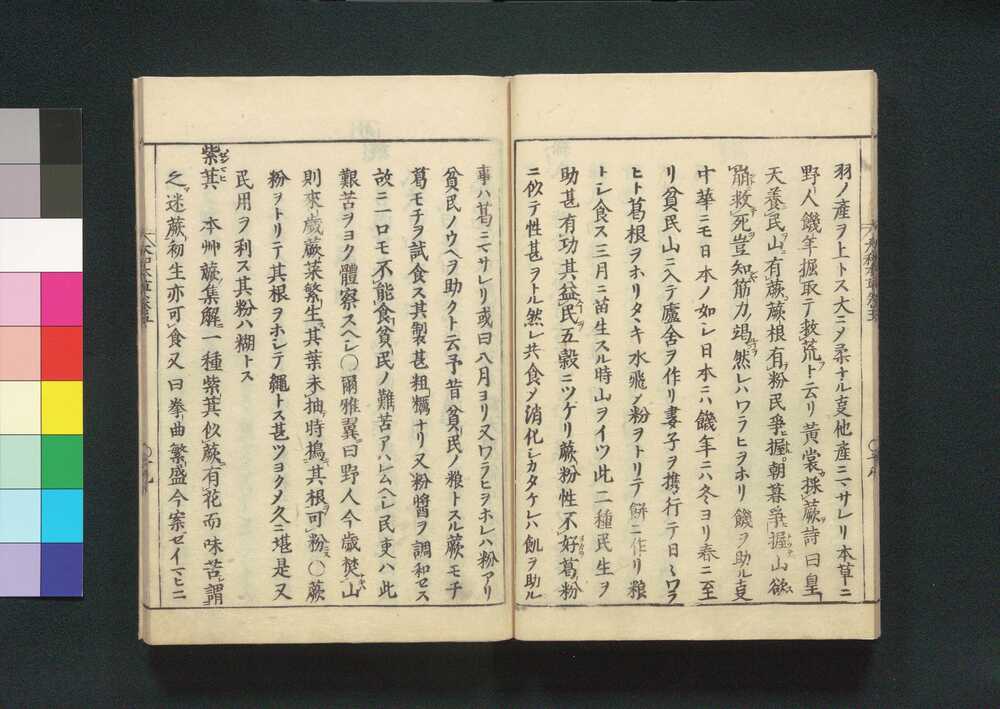 羽ノ産ヲ上トス大ニメ柔ナル叓他産ニマサレリ本草ニ
野人饑年掘取テ救荒ト云リ黄裳採蕨詩曰皇
天養民山有蕨蕨根有粉民爭掘朝暮爭掘山欲
崩救死豈知筋力竭然レハワラヒヲホリ饑ヲ助ル叓
中華ニモ日本ノ如シ日本ニハ饑年ニハ冬ヨリ春ニ至
リ貧民山ニ入テ廬舍ヲ作リ妻子ヲ携行テ日々ワラ
ヒト葛根ヲホリタヽキ水飛メ粉ヲトリテ餅ニ作リ粮
トシ食ス三月ニ苗生スル時山ヲイツ此二種民生ヲ
助甚有功其益民五穀ニツケリ蕨粉性不好葛粉
ニ似テ性甚ヲトル然レ共食メ消化シカタケレハ飢ヲ助ル
事ハ葛ニマサレリ或曰八月ヨリ又ワラヒヲホレハ粉アリ
貧民ノウヘヲ助クト云予昔貧民ノ粮トスル蕨モチ
葛モチヲ試食ス其製甚粗糲ナリ又粉醬ヲ調和セス
故ニ一口モ不能食貧民ノ難苦アハレムヘシ民吏ハ此
艱苦ヲヨク體察スヘシ○爾雅翼曰野人今歳焚山
則來歳蕨菜繁生其葉未抽時搗其根可粉○蕨
粉ヲトリテ其根ヲホシテ縄トス甚ツヨクメ久ニ堪是又
民用ヲ利ス其粉ハ糊トス
紫萁 本艸蕨集解一種紫萁似蕨有花而味苦謂
之迷蕨初生亦可食又曰拳曲繁盛今案ゼイマヒニ